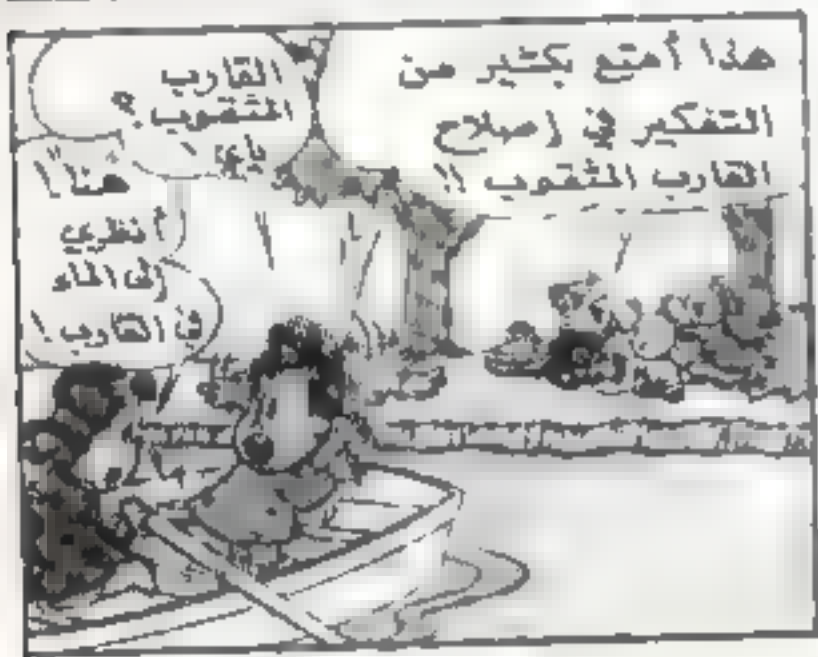 هذا أمتع بكثير من
التفكير في إصلاح
القارب المثقوب !!
القارب
المثقوب ؟
ياي !
هنا !
أنظري
إلى الماء
في القارب !